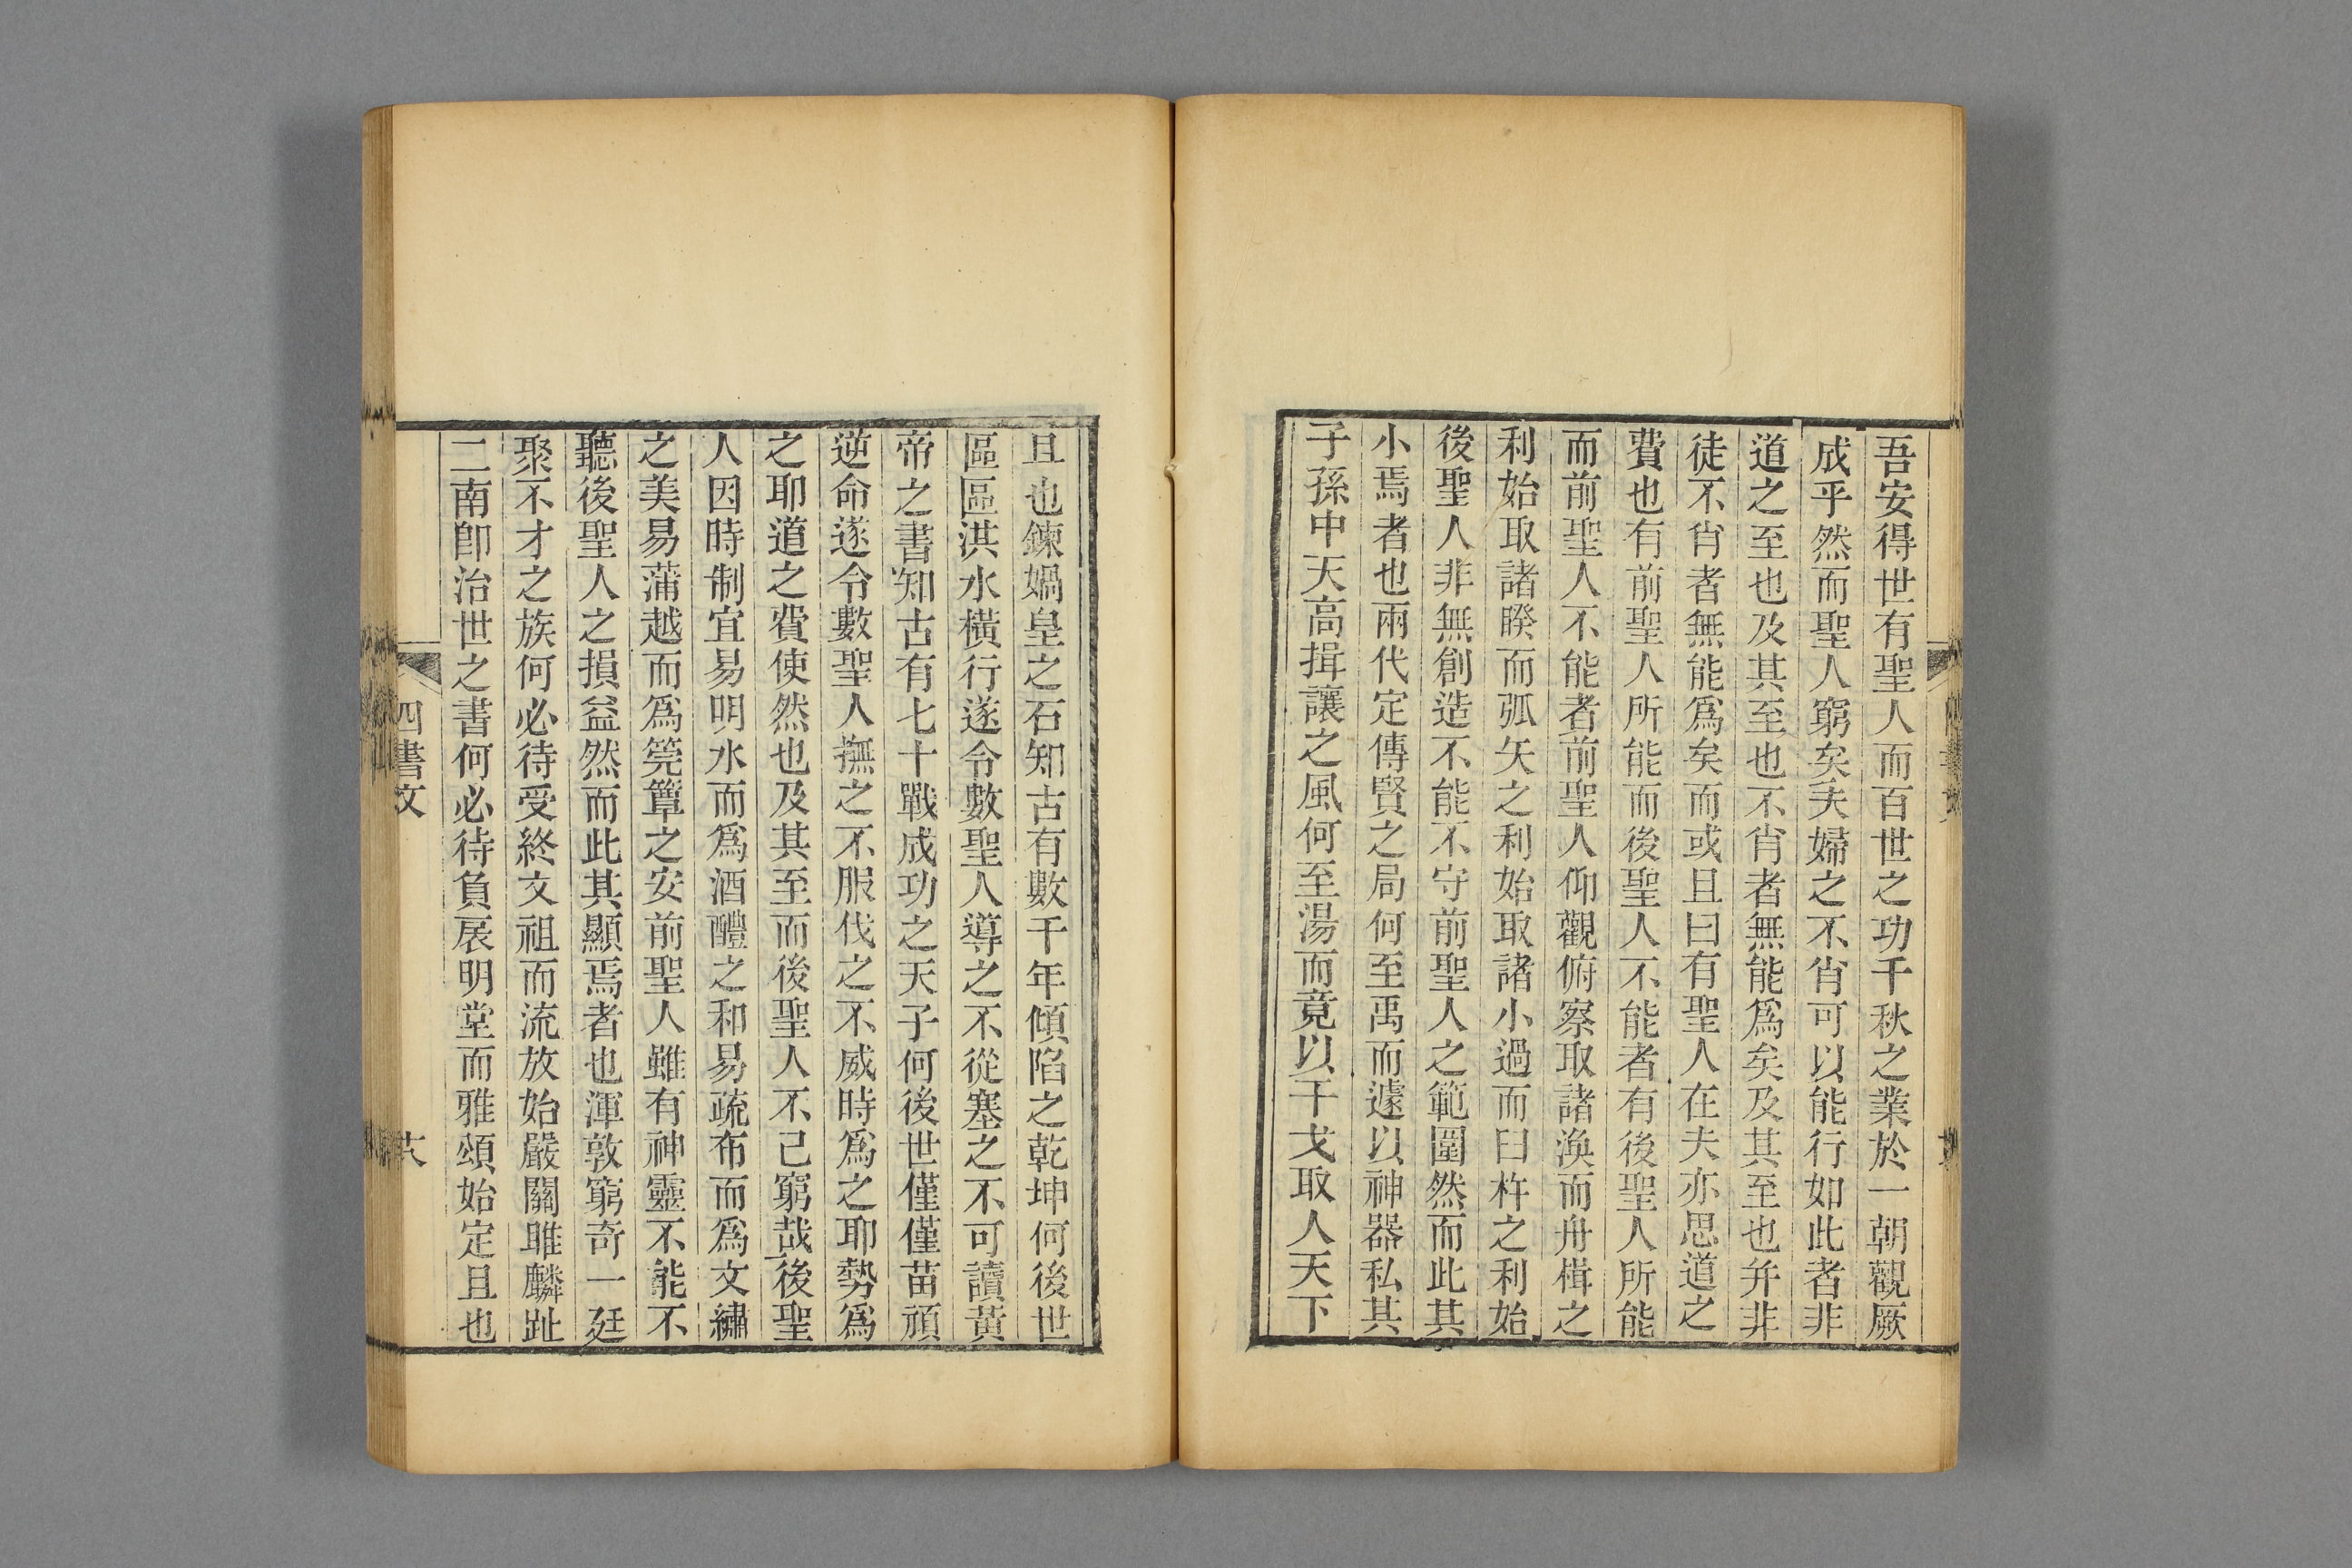 吾安得世有聖人而百世之功千秋之業於一朝觀厥
成乎然而聖人窮矣夫婦之不肖可以能行如此者非
道之至也及其至也不肖者無能爲矣及其至也并非
徒不肖者無能爲矣而或且曰有聖人在夫亦思道之
費也有前聖人所能而後聖人不能者有後聖人所能
而前聖人不能者前聖人仰觀俯察取諸渙而舟楫之
利始取諸睽而弧矢之利始取諸小過而臼杵之利始
後聖人非無創造不能不守前聖人之範圍然而此其
小焉者也兩代定傳賢之局何至禹而遽以神器私其
子孫中天高揖讓之風何至湯而竟以干戈取人天下
且也鍊媧皇之石知古有數千年傾陷之乾坤何後世
區區洪水橫行遂令數聖人導之不從塞之不可讀黃
帝之書知古有七十戰成功之天子何後世僅僅苗頑
逆命遂令數聖人撫之不服伐之不威時爲之耶勢爲
之耶道之費使然也及其至而後聖人不已窮哉後聖
人因時制宜易明水而爲酒醴之和易疏布而爲文繡
之美易蒲越而爲筦簟之安前聖人雖有神靈不能不
聽後聖人之損益然而此其顯焉者也渾敦窮奇一廷
聚不才之族何必待受終文祖而流放始嚴關雎麟趾
二南卽治世之書何必待負扆明堂而雅頌始定且也
四書文